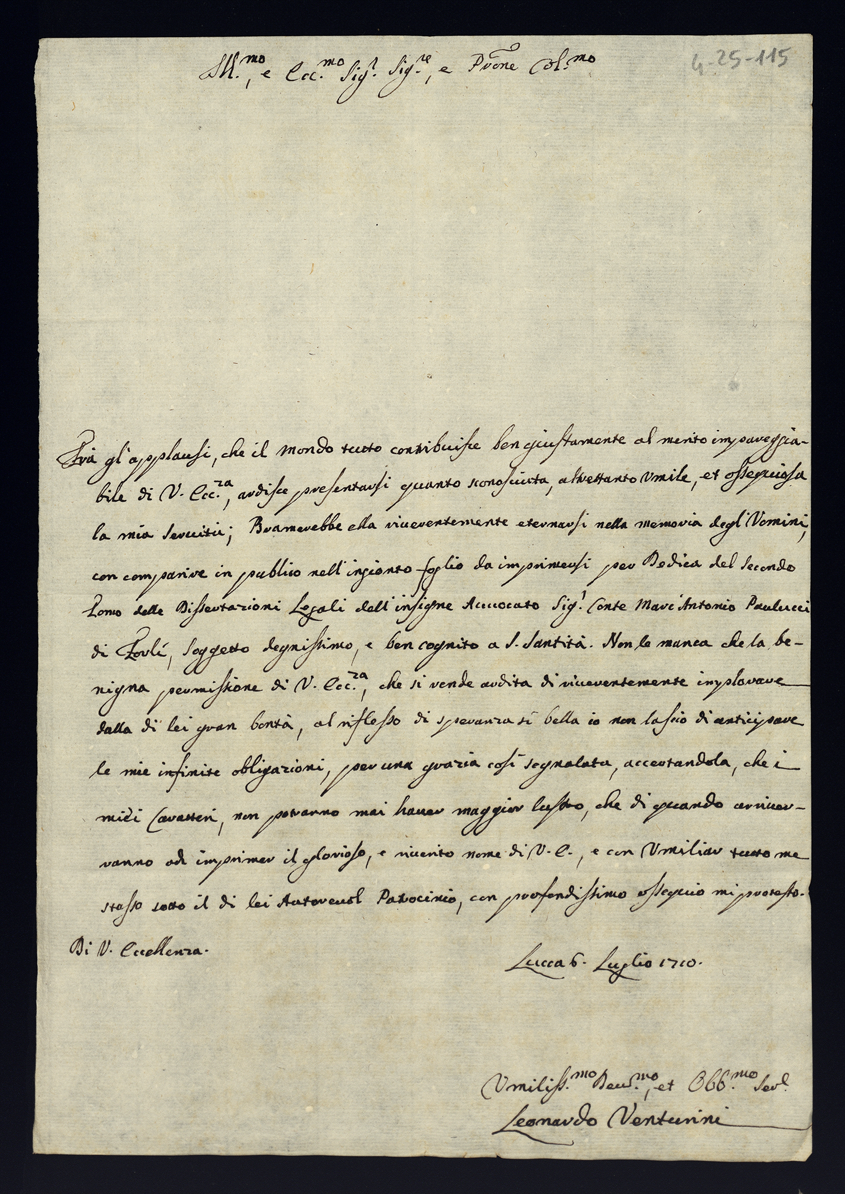 Ill.mo, e Ecc.mo Sig.r Sig.re, e Pròne Col.mo
4-25-115
Frà gl'applausi, che il mondo tutto contribuisce ben giustamente al merito impareggia-
bile di V. Ecc.za, ardisce presentarsi quanto sconosciuta, altrettanto Umile, et ossequiosa
la mia Servitù; Bramerebbe ella riverentemente eternarsi nella memoria degl'Uomini,
con comparire in publico nell'ingionto foglio da imprimersi per Dedica del Secondo
Tomo delle Dissertazioni Legali dell'insigne Avvocato Sig.r Conte Marc'Antonio Paulucci
di Forlì, Soggetto degnissimo, e ben cognito a S. Santità. Non le manca che la be-
nigna permissione di V. Ecc.za, che si rende ardita di riverentemente implorare
dalla di lei gran bontà, al riflesso di speranza sì bella io non lascio di anticipare
le mie infinite obligazioni, per una grazia così segnalata, accertandola, che i
miei Caratteri, non potranno mai haver maggior lustro, che di quando arriver-
ranno ad imprimer il glorioso, e riverito nome di V. E., e con Umiliar tutto me
stesso sotto il di lei Autorevol Patrocinio, con profondissimo ossequio mi protesto.
Di V. Eccellenza.
Lucca 6. Luglio 1710.
Umiliss.mo Dev.mo, et Obb.mo Ser.
Leonardo Venturini